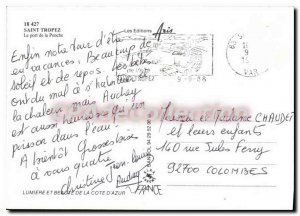 18 427
SAINT TROPEZ
Le port de la Ponche
Les Editions
Enfin notre
en vacances, Beaucoup de
soleil et de repos. Les bébés
ont du mal à s'habituer à
la chaleur mais Audrey
est aussi heureuse qu'un
poisson dans l'eau!
A bientôt Grosses bises
à vous quatre
Christine Jean Louis
Audrey
9-9-86
VAR
et leurs enfants
146 rue Jules Ferry
92700 COLOMBES
FRANCE
LUMIÈRE ET BEAUTÉ DE LA COTE D'AZUR